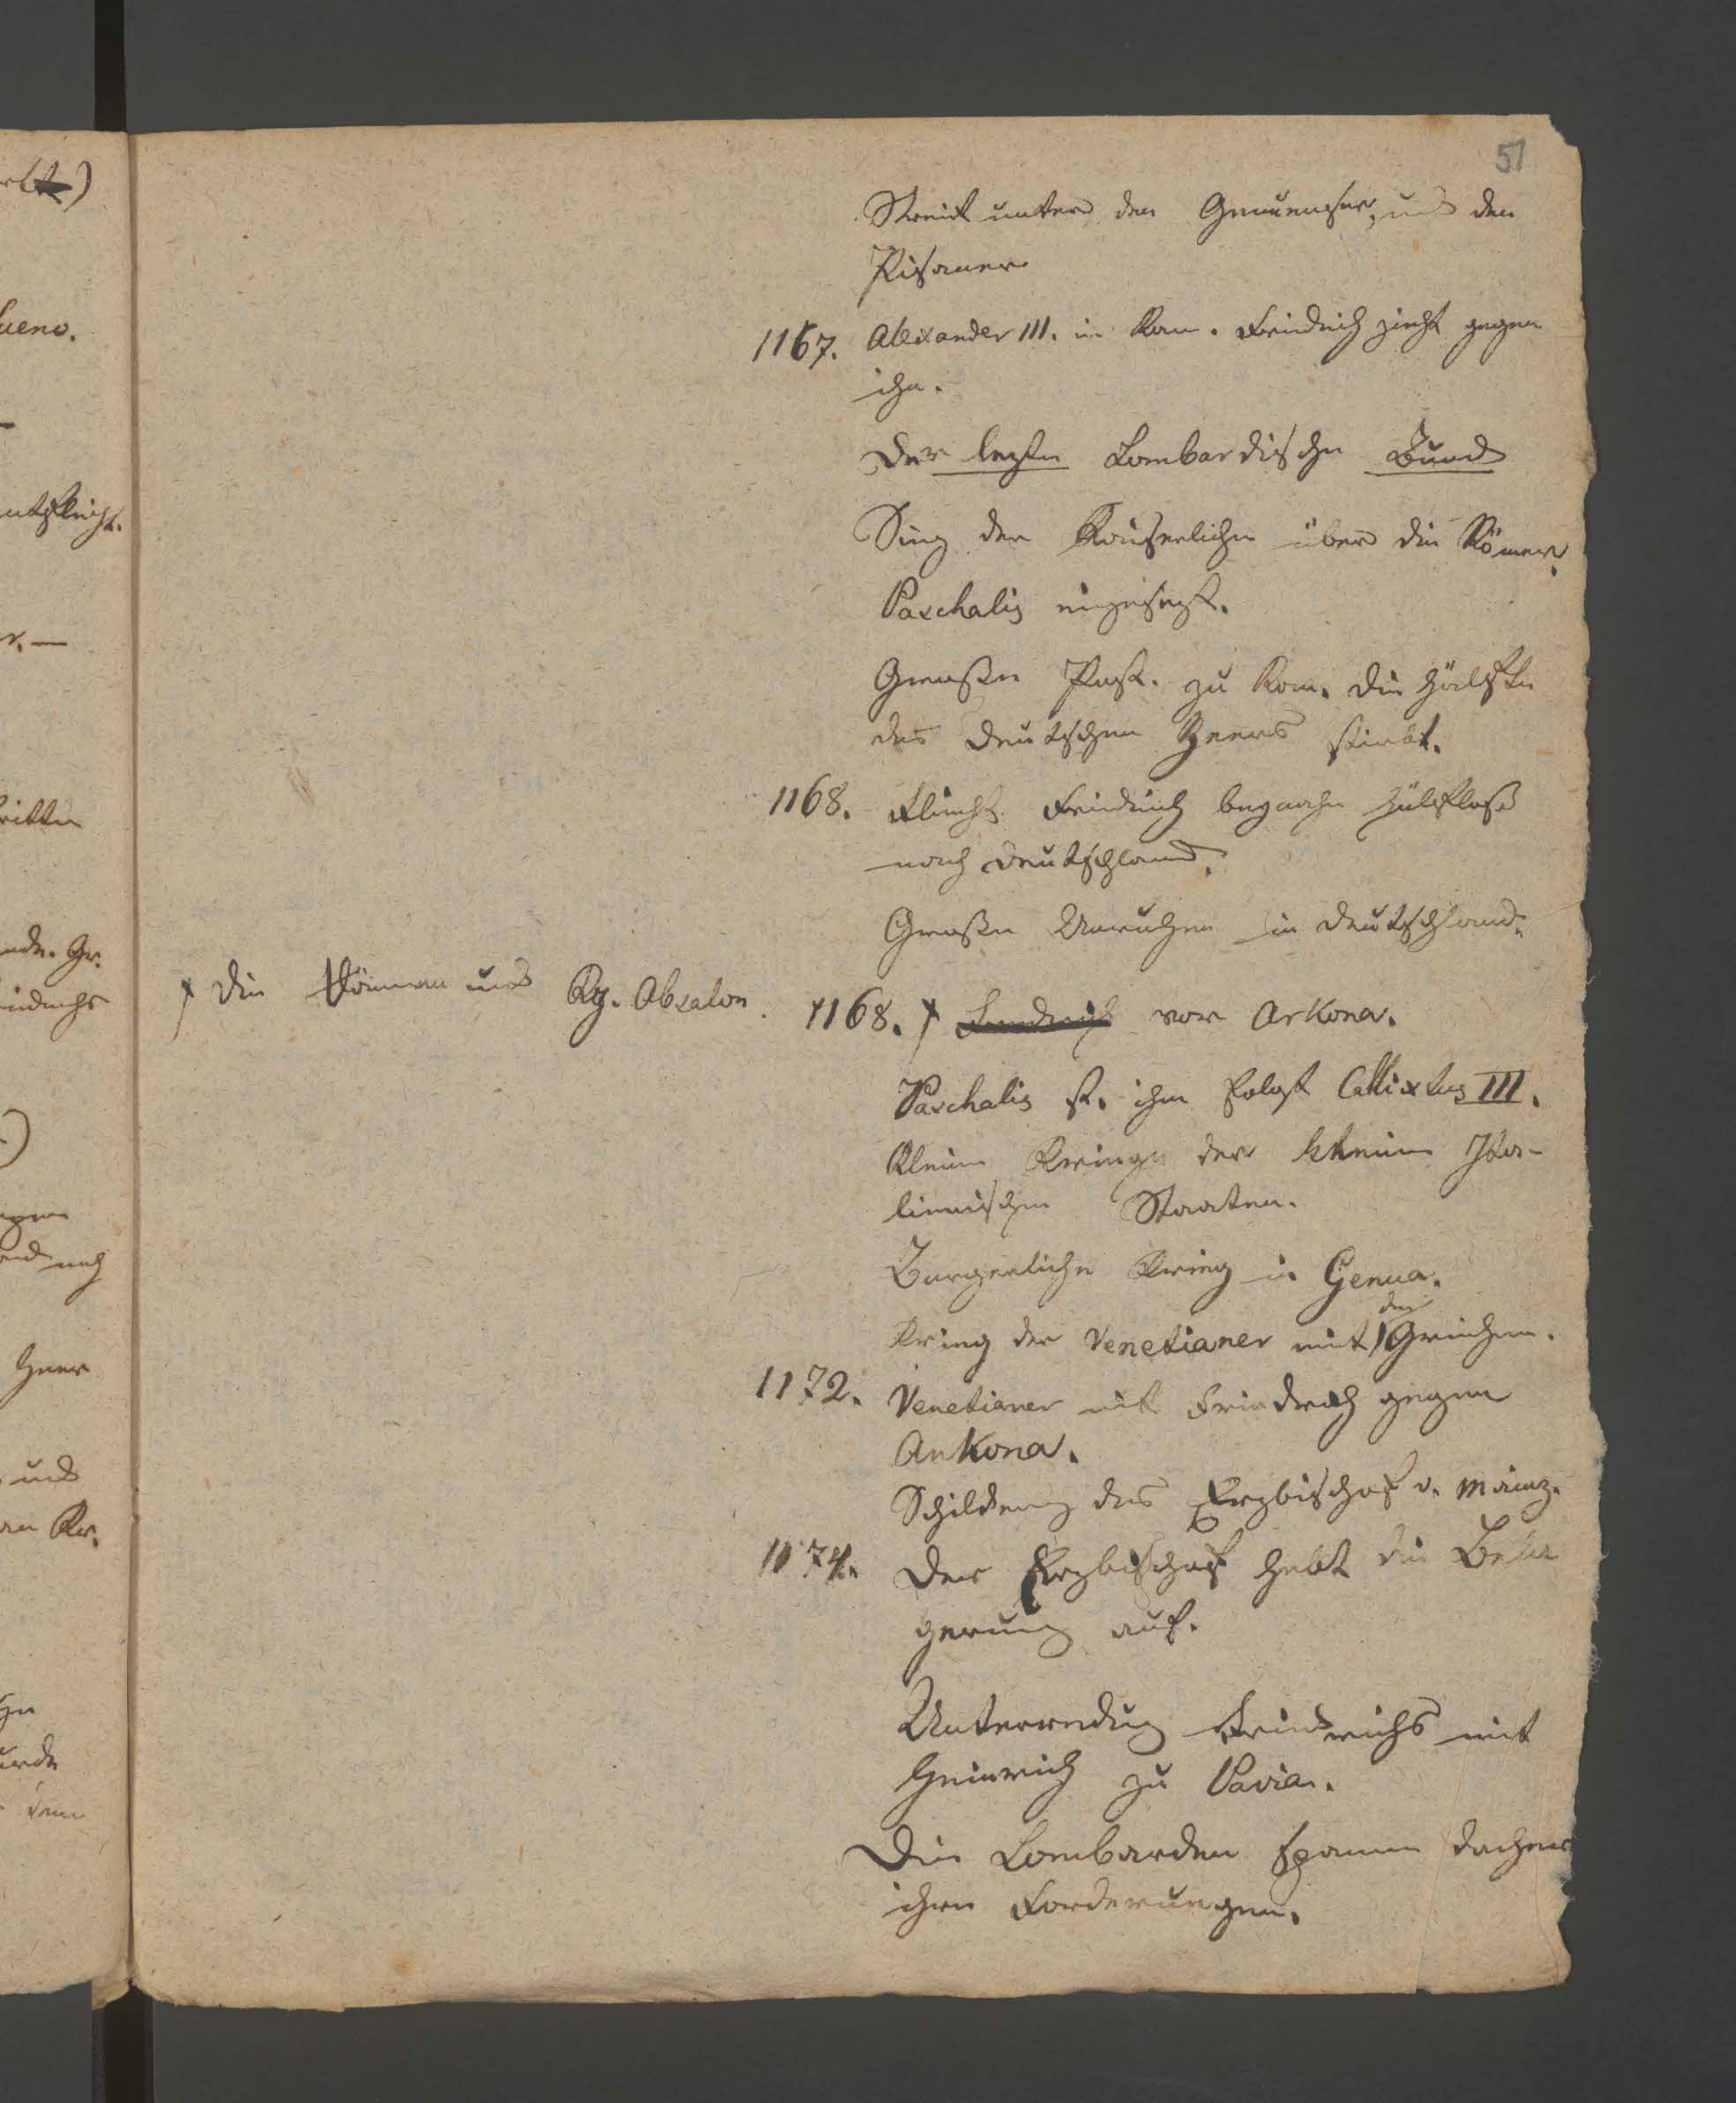 51
Streit unter den Genueser, und den
Pisaner
1167. Alexander III. in Rom. Friedrich zieht gegen
ihn.
Der lezte Lombardische Bund
Sieg der Kaiserlichen über die Römer.
Paschalis eingesezt.
Grosse Pest. zu Rom. Die Hälfte
des Deutschen Heers stirbt.
1168. Flieht Friedrich beynahe hülflos
nach Deutschland.
Grosse Unruhen in Deutschland.
† Die Dännen und Kg. Absalon.
1168. † Friedrich vor Arkona.
Paschalis st. ihm folgt Callixtus III.
Kleine Kriege der kleine Ita-
lienischen Staaten.
Burgerliche Krieg in Genua.
Krieg der Venetianer mit den Griechen.
1172. Venetianer mit Friedrich gegen
Ankona.
Schilderung des Erzbischof v. Mainz.
1174. Der Erzbischof hebt die Bela
gerung auf.
Unterredung Friedrichs mit
Heinrich zu Pavia.
Die Lombarden
ihre Forderungen.